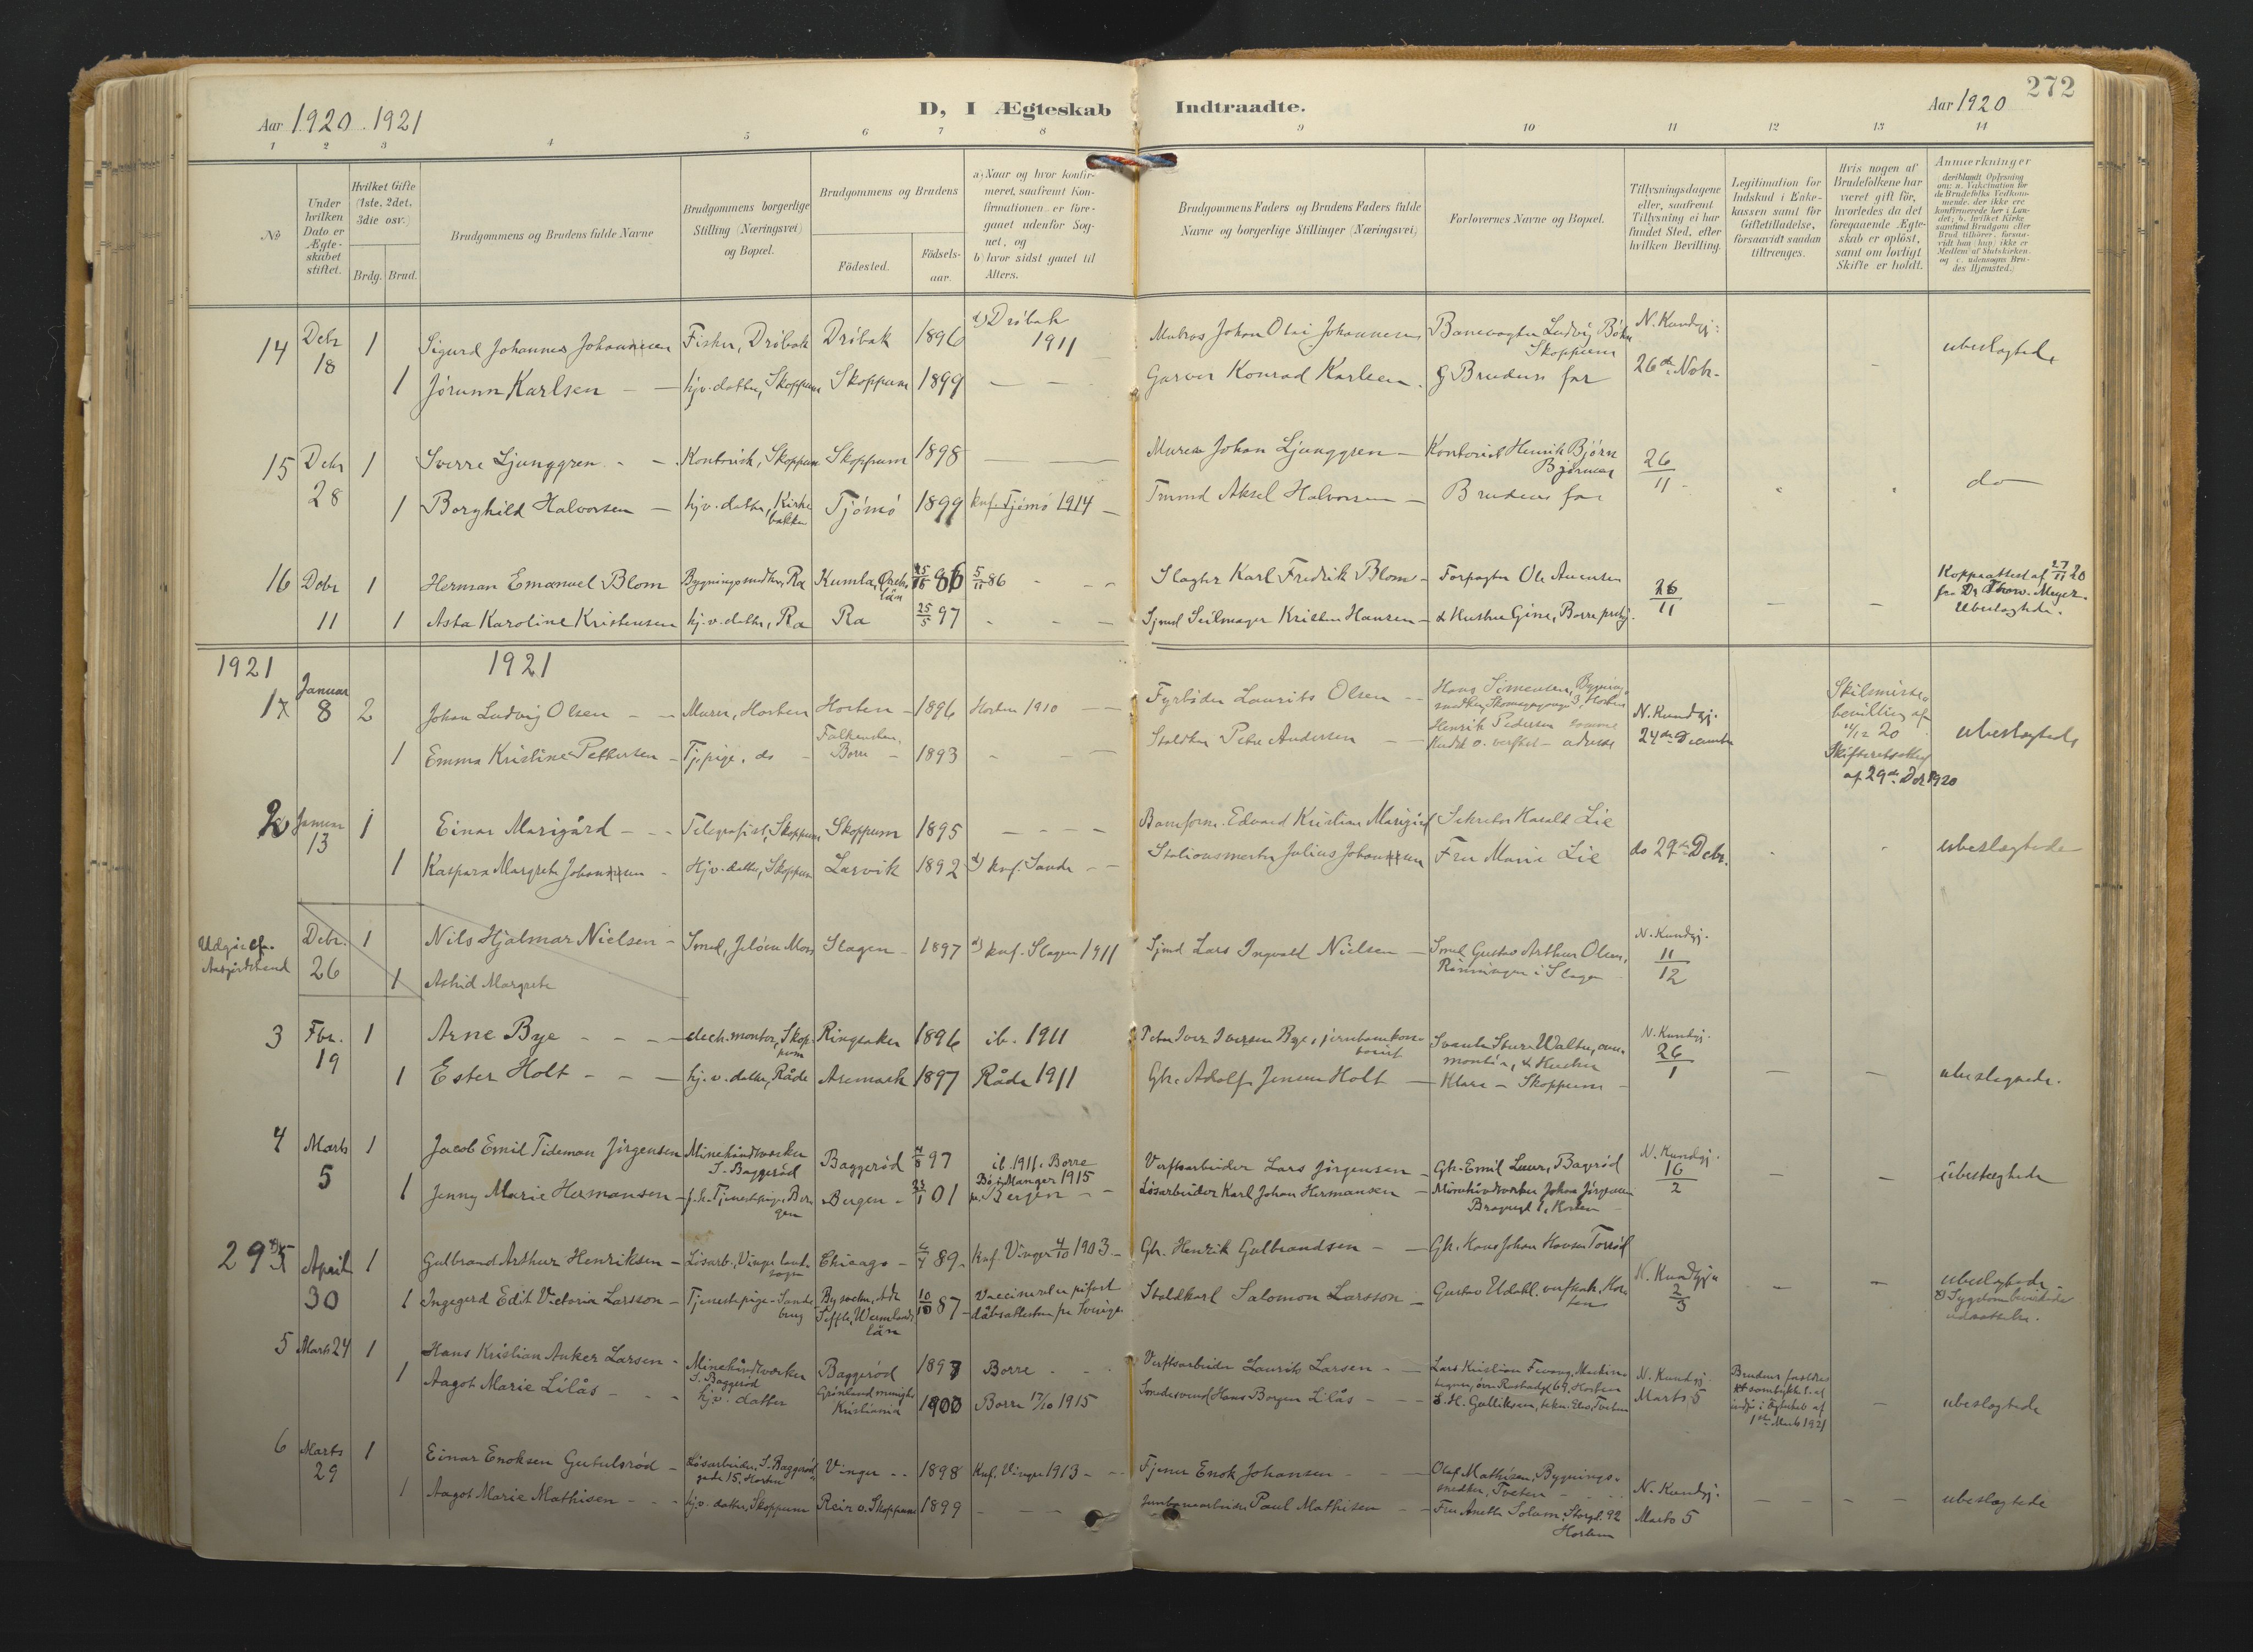 272
Aar 1920. 1921
D, I Ægteskab Indtraadte.
Aar 1920
1 2 3 4 5 6 7 8 9 10 11 12 13 14
№
Under hvilken Dato er Ægteskabet stiftet.
Hvilket Gifte (1ste, 2det, 3die osv.)
Brdg. Brud.
Brudgommens og Brudens fulde Navne
Brudgommens borgerlige Stilling (Næringsvei) og Bopæl.
Brudgommens og Brudens
Fødested.
Fødselsaar.
a) Naar og hvor konfirmeret, saafremt Konfirmationen er foregaaet udenfor Sognet, og
b) hvor sidst gaaet til Alters.
Brudgommens Faders og Brudens Faders fulde Navne og borgerlige Stillinger (Næringsvei)
Forlovernes Navne og Bopæl.
Tillysningsdagene eller, saafremt Tillysning ei har fundet Sted, efter hvilken Bevilling.
Legitimation for Indskud i Enkekassen samt for Giftetilladelse, forsaavidt saadan tiltrænges.
Hvis nogen af Brudefolkene har været gift før, hvorledes da det foregaaende Ægteskab er opløst, samt om lovligt Skifte er holdt.
Anmærkninger
14 Debr 18 1 Sigurd Johannes Johannesen Fisker, Drøbak Drøbak 1896 a) Drøbak 1911 Matros Johan Olai Johannesen Banevogter Ludvig Skoppum N. Kundgj: 26de Nobr. ubeslægtede
1 Jørunn Karlsen hjv. datter, Skoppum Skoppum 1899 Garver Konrad Karlsen Brudens far
15 Debr 28 1 Sverre Ljunggren Kontorist, Skoppum Skoppum 1898 Murer Johan Ljunggren Kontorist Henrik Bjørn 26/11 do
1 Borghild Halvorsen hjv. datter, Kirkebakken Tjømø 1899 knf. Tjømø 1914 Tmmd Aksel Halvorsen Brudens far
16 Debr 11 1 Herman Emanuel Blom Bygningssnedker, Ra Kumla, Örebro län 86 5/11 86 Slagter Karl Fredrik Blom Forpagter Ole Amensen 26/11 Koppeattest af 27/11 20 fra Dr Thorv. Meyer. Ubeslægtede.
1 Asta Karoline Kristensen hj.v. datter, Ra Ra 25/5 97 Sjmd Seilmager Kristen Hansen & Hustru Gine, Borre prstgj.
1921 1921
1 Januar 8 2 Johan Ludvig Olsen Murer, Horten Horten 1896 Horten 1910 Fyrbøder Laurits Olsen Hans Simensen, Bygningssnedker, 3, Horten N. Kundgj. 24de December Skilsmissebevilling af 20 Skifteretsattest af 29de Dcbr 1920 ubeslægtede
1 Emma Kristine Pettersen Tj.pige, do Falkensten, Borre 1893 Staldkar Peter Andersen Henrik Pedersen samme adresse
2 Januar 13 1 Einar Marigård Telegrafist, Skoppum Skoppum 1895 Baneform. Edvard Kristian Marigård Harald Lie do 29de Debr. ubeslægtede
1 Kaspara Margrete Johansen Hjv. datter, Skoppum Larvik 1892 a) knf. Sande Stationsmester Julius Johansen Fru Marie Lie
Udgår efr. Aasgårdstrand Debr. 26 1 Nils Hjalmar Nielsen Smed, Jeløen Moss Slagen 1897 a) knf. Slagen 1911 Sjmd Lars Ingvald Nielsen Smed Gustav Arthur Olsen, Rønningen i Slagen N. Kundgj. 11/12
1 Astrid Margrete
3 Fbr. 19 1 Arne Bye elech. montør, Skoppum Ringsaker 1896 ib. 1911 Peter Iver Iversen Bye, jernbanekontorist Svante Sture Walter, montør, & Hustru N. Kundgj. 26/1 ubeslægtede.
1 Ester Holt hj.v. datter, Råde Aremark 1897 Råde 1911 Gbr. Adolf Jensen Holt Klara - Skoppum
4 Marts 5 1 Jacob Emil Tideman Jørgensen Minehåndtværker S. Baggerød Baggerød 97 ib. 1911. Borre Verftsarbeider Lars Jørgensen Gbr. Emil Baggerød N. Kundgj. 16/2 ubeslægtede
1 Jenny Marie Hermansen f.h. Tjenestepige, Bergen Bergen 01 Manger 1915 Bergen Løsarbeider Karl Johan Hermansen Minehåndtverker Johan Jørgensen Bragesgt 1, Horten
29 5 April 30 1 Gulbrand Arthur Henriksen Løsarb., Vinger landsogn Chicago 89 Knf. Vinger 4/10 1903 Gbr. Henrik Gulbrandsen Gbr. Hans Johan Hansen Torrød N. Kundgj. 2/3 ubeslægtede
1 Ingegerd Edit Victoria Larsson Tjenestepige - Sandeburg By socken, Säffle, Wermlands län 10/10 87 Vaccineret ifølge dåbsattesten fra Sverige Staldkarl Salomon Larsson Gustav Udahl. Horten Sygdom bevirkede udsættelse.
5 Marts 24 1 Hans Kristian Anker Larsen Minehåndtværker S. Baggerød Baggerød 1897 Borre Verftsarbeider Laurits Larsen Lars Kristian 69, Horten N. Kundgj. Marts 5 Brudens forældres samtykke t. at indgå i Ægteskab af 1ste Marts 1921 ubeslægtede
1 Aagot Marie Lilås hjv. datter Grønland menighed Kristiania 1900 Borre 17/10 1915 Smedesvend Hans Borgen Lilås S. H. Gulliksen,
6 Marts 29 1 Einar Enoksen Gutulsrød Løsarbeider, S. Baggerødgade 15, Horten Vinger 1898 Knf. Vinger 1913 Fjener Enok Johansen Olaf Mathisen, Bygningssnedker, Tveten N. Kundgj. Marts 5 ubeslægtede
1 Aagot Marie Mathisen hjv. datter, Skoppum Reir v. Skoppum 1899 Jernbanearbeider Paul Mathisen Fru Anette Solum, Storgt. 92 Horten